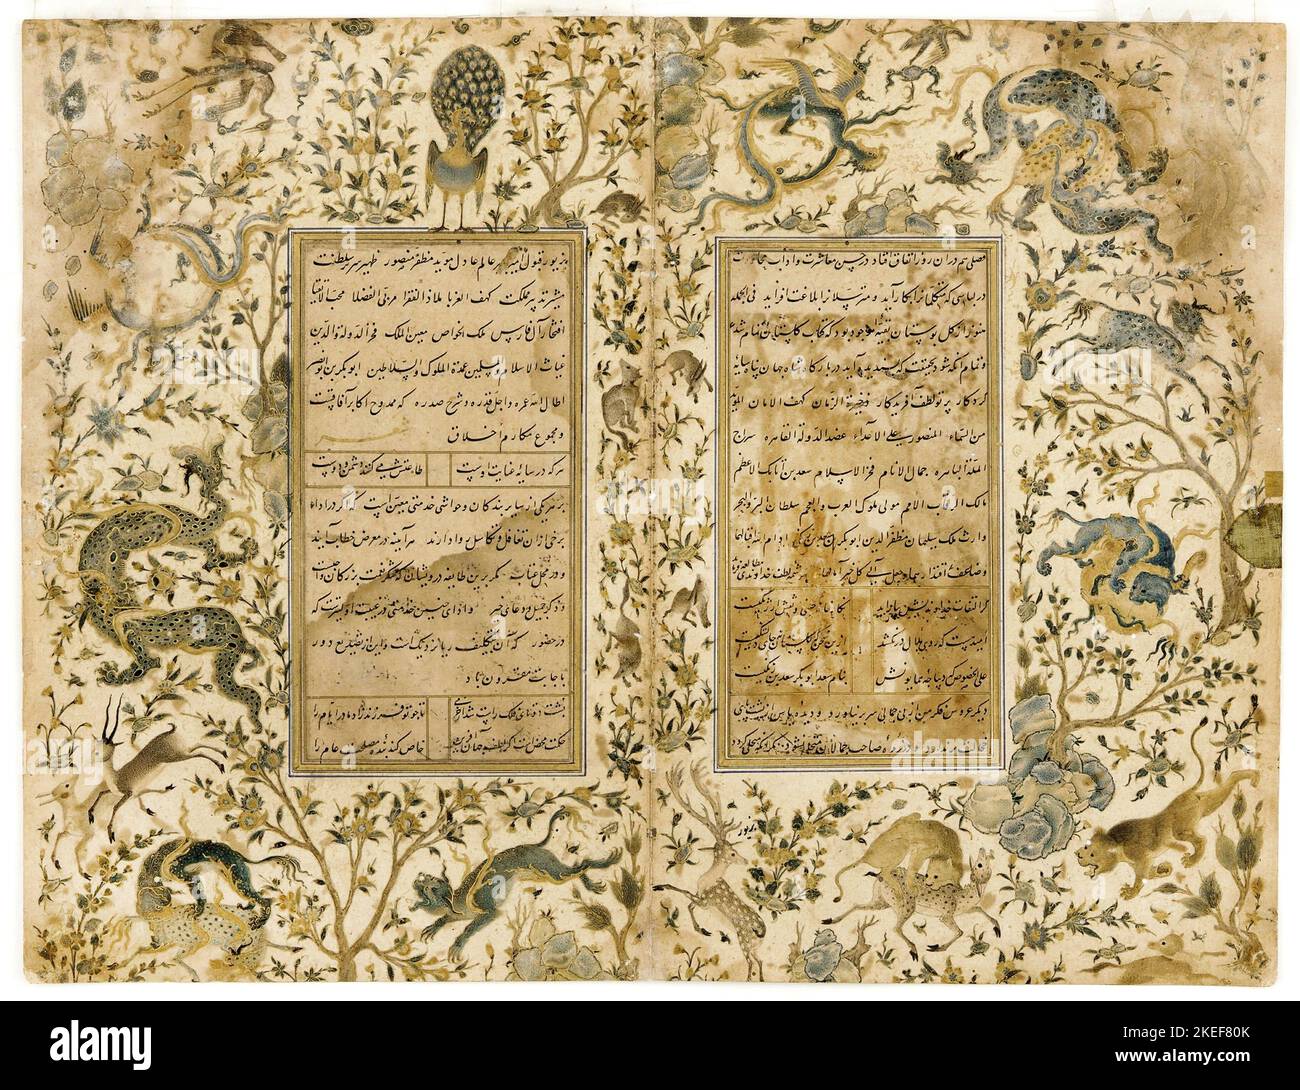 فصلی هم دران روز اتفاق افتاد در حسن معاشرت و اداب مجاورت
در لباسی که متکلمانرا بکار آید و مترسلانرا بلاغت افزاید فی الجمله
هنوز از کل بوستان بقیه موجود بود که کتاب کلستان تمام شد
و تمام آنکه شود بحقیقت که پسندیده آید در بارکاه شاه جهان پناه سایه
کردکار پرتو لطف آفریدکار ذخیرة الزمان کهف الامان المؤید
من السماء المنصور علی الاعداء عضد الدولة القاهره سراج
الملة الباهره جمال الانام فخر الاسلام سعد بن اتابک الاعظم
مالک الرقاب الامم مولی ملوک العرب والعجم سلطان البر والبحر
وارث ملک سلیمان مظفر الدین ابوبکر بن سعد بن زنکی ادام الله اقبالهما
کر التفات خداوندیش بیاراید نکارخانه چینی و نقش ارژنکیست
امید هست که روی ملال در نکشد ازین سخن که کلستان نه جای دلتنکیست
علی الخصوص که دیباچه همایونش بنام سعد ابوبکر سعد بن زنکیست
دیکر عروس فکر من از بی جمالی سر بر نیاورد و دیده یاس از پشت پای
خجالت بر ندارد و در زمره صاحب جمالان متجلی نشود مکر آنکه که متحلی کردد
بزیور قبول امیر کبیر عالم عادل مؤید مظفر منصور ظهیر سریر سلطنت
مشیر تدبیر مملکت کهف الغربا ملاذ الفقرا مربی الفضلا محب الاتقیا
افتخار آل فارس ملک الخواص معین الملک فخر الدوله والدین
غیاث الاسلام والمسلمین عمدة الملوک والسلاطین ابوبکر بن ابونصر
اطال الله عمره واجل قدره وشرح صدره که ممدوح اکابر آفاقست
ومجموع مکارم اخلاق
هر که در سایه عنایت اوست طاعتش میکنند و دشمن دوست
بر هر یکی از سایر بندکان و حواشی خدمتی معین است که اکر در اداء
برخی ازان تغافل و تکاسل روا دارند هر آینه در معرض خطاب آیند
و در محل عتاب مکر برین طایفه درویشان که شکر نعمت بزرکان واجبست
و ذکر جمیل و دعای خیر و ادای چنین خدمتی در غیبت اولیترست که
در حضور که آن بتکلف نزدیکست و این از تصنع دور
باجابت مقرون باد
پشت دوتای فلک راست شد از خرمی تا چو تو فرزند زاد مادر ایام را
حکمت محض است اکر لطف جهان آفرین خاص کند بنده مصلحت عام را
alamy
Image ID: 2KEF80K
www.alamy.com